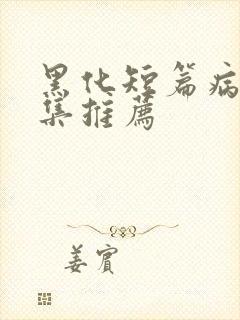 黑化短篇病
集推薦
姜賓